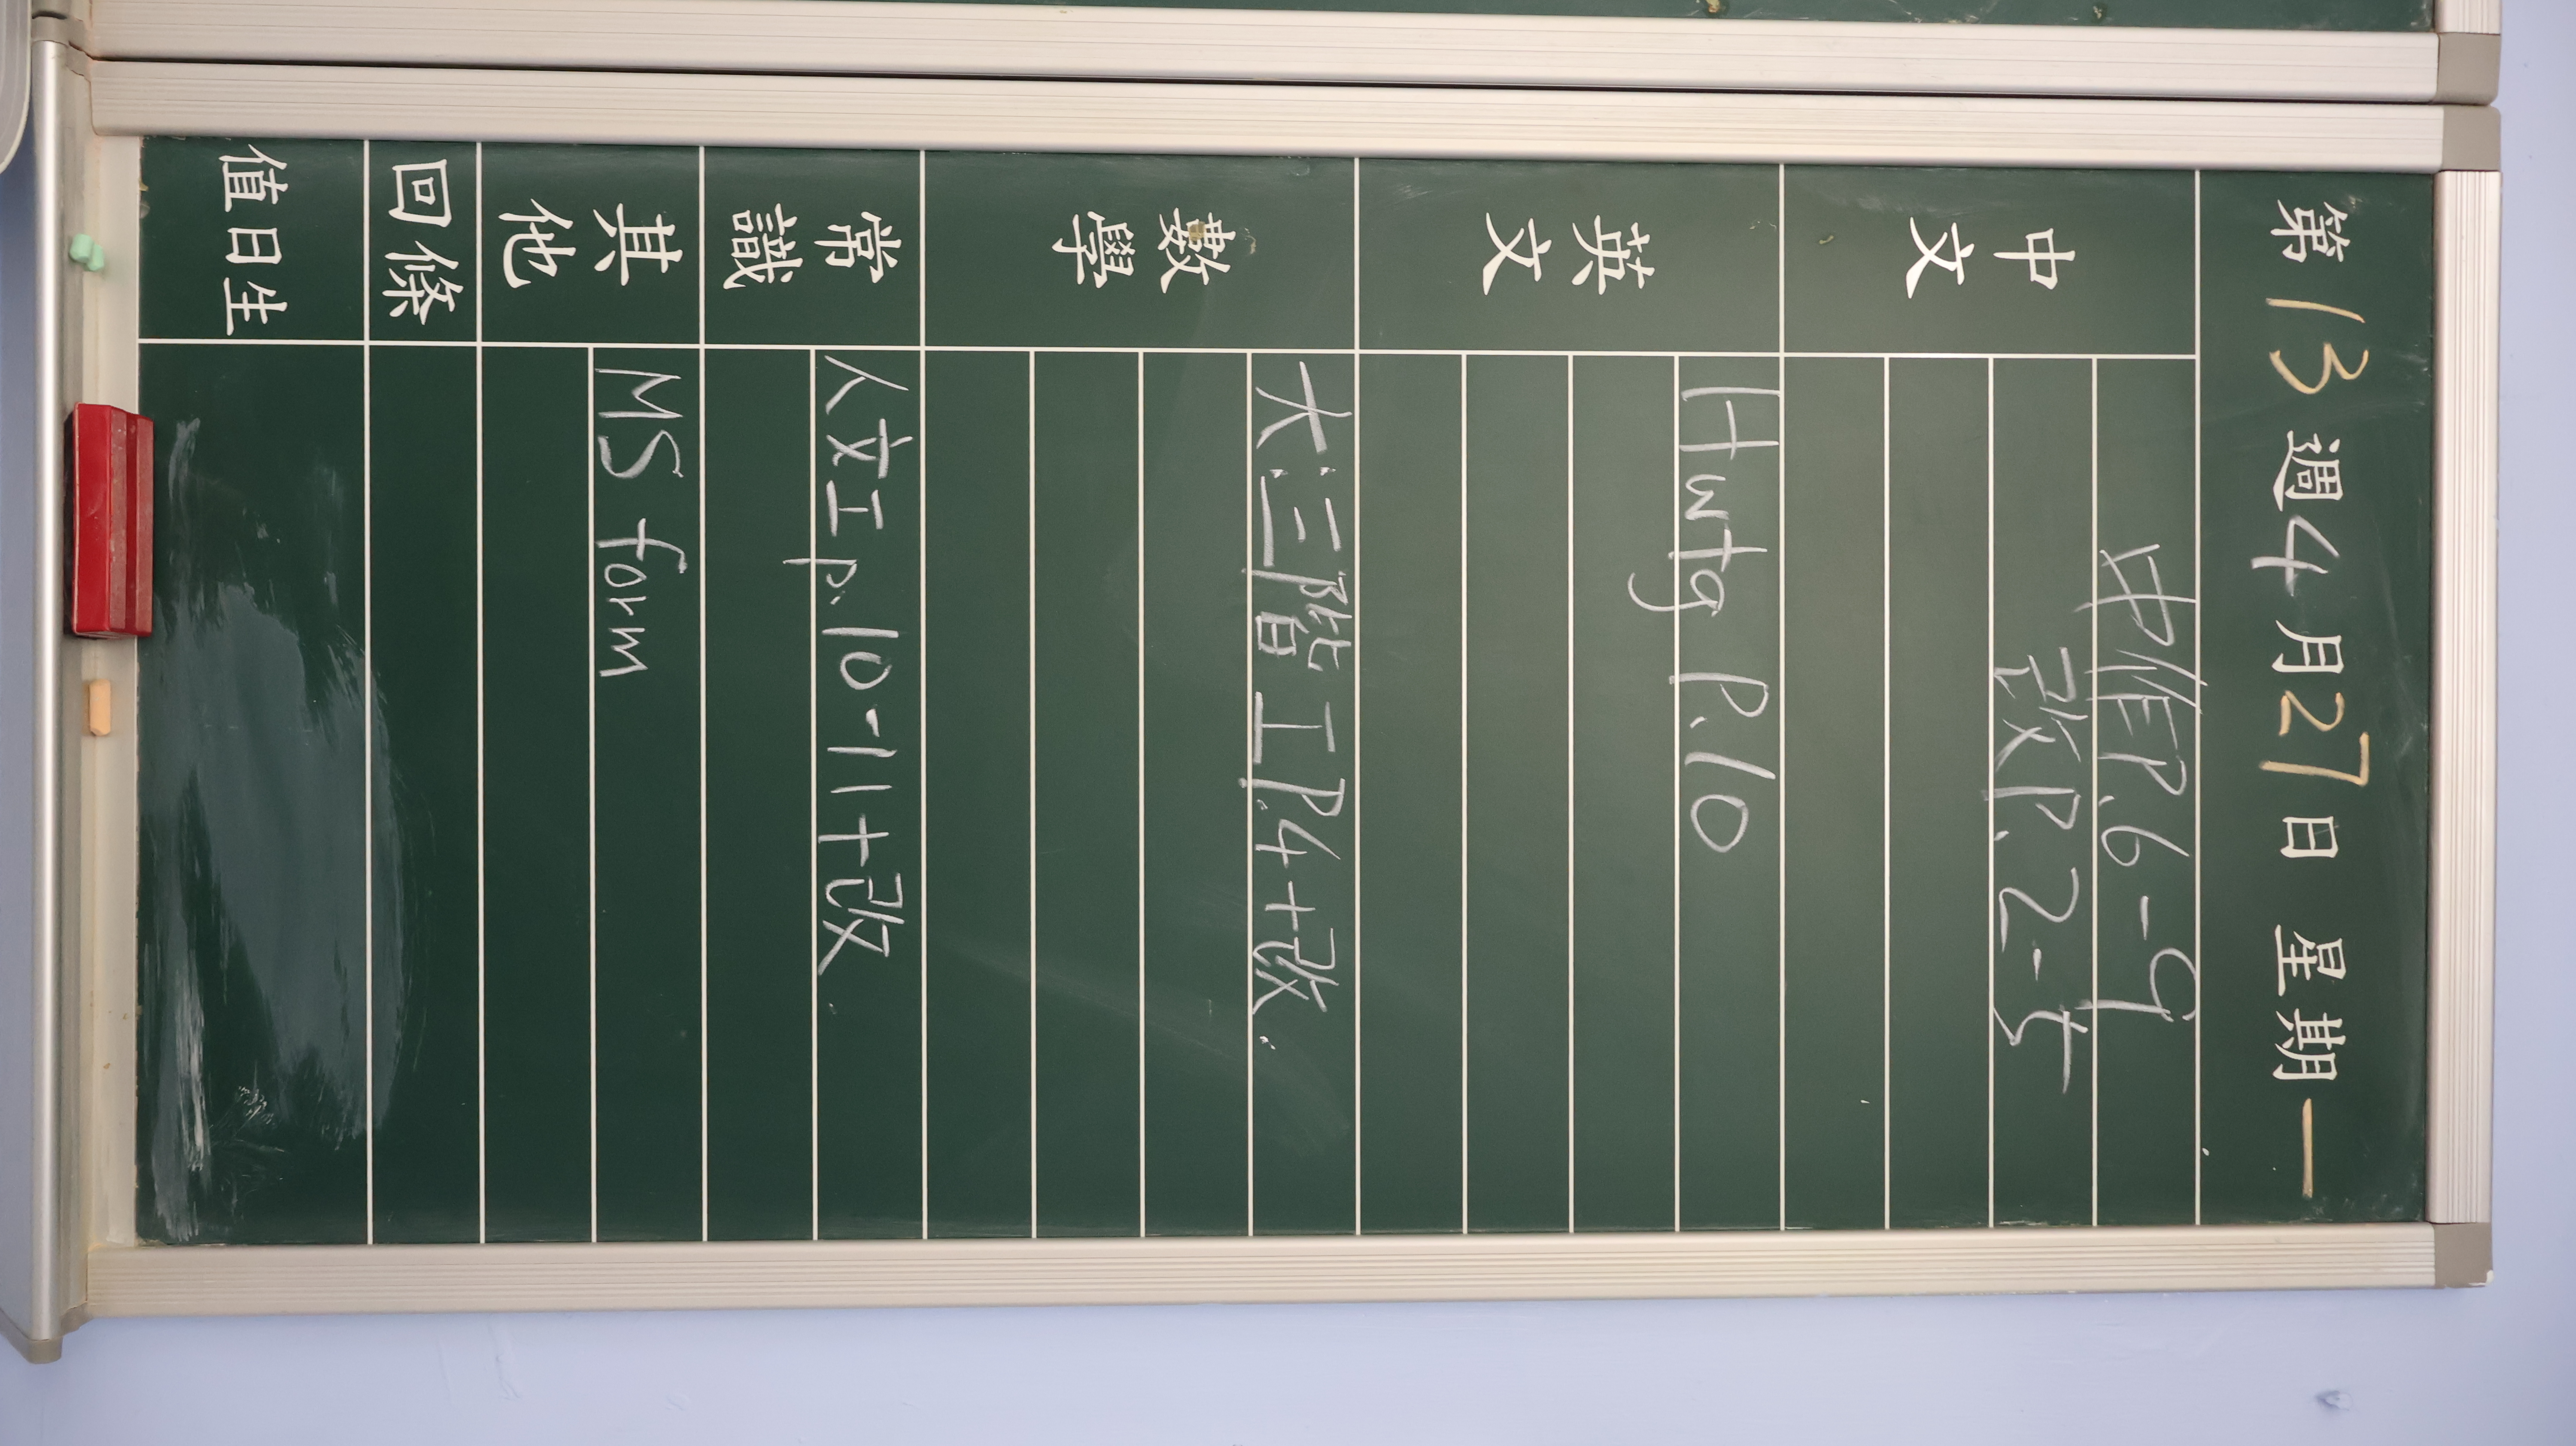 第13週4月27日 星期一
中文
中作P.6-9
改P.2-5
英文
Hwtg P.10
數學
大三階工P.4+改.
常識
人文工p.10-11+改.
其他
MS form
回條
值日生